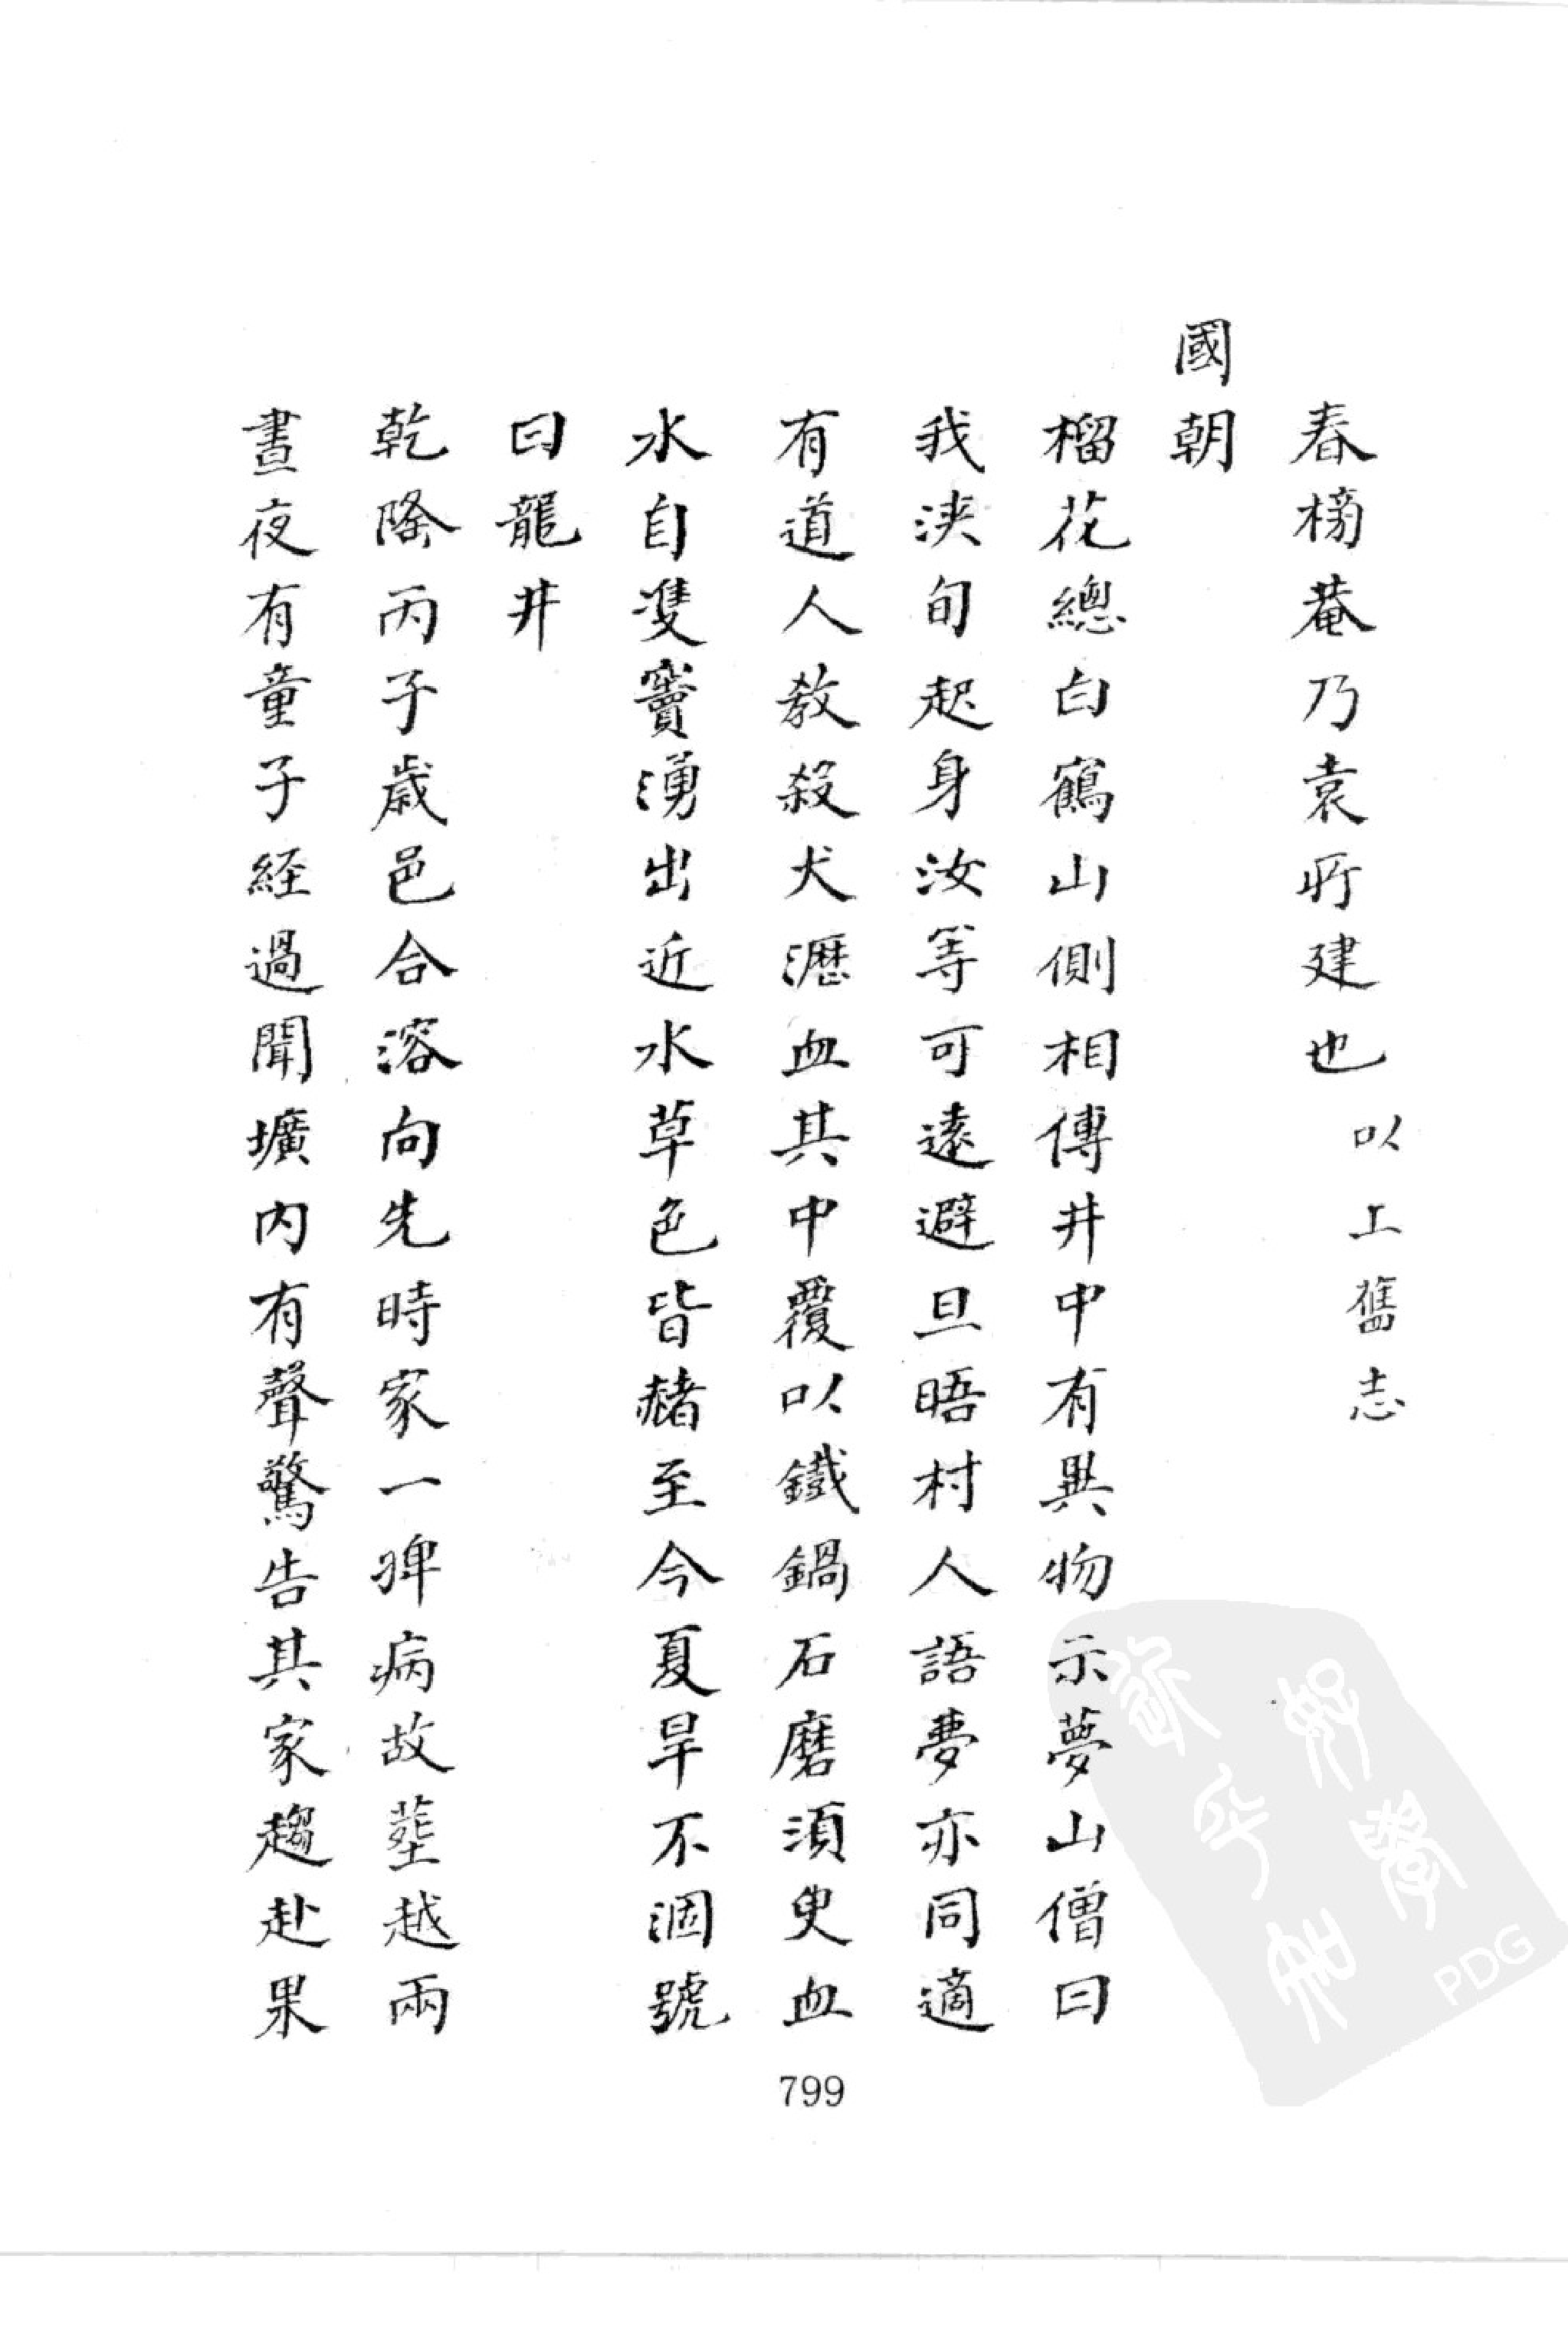 春榜菴乃袁所建也以上舊志
國朝
榴花總白鶴山側相傳井中有異物示夢山僧曰
我浹旬起身汝等可遠避旦晤村人語夢亦同適
有道人教殺犬瀝血其中覆以鐵鍋石磨須臾血
水自雙竇湧出近水草色皆赭至今夏旱不涸號
曰龍井
乾隆丙子歲邑合溶向先時家一婢病故塟越兩
晝夜有童子経過聞壙内有聲驚告其家趨赴果
799
PDG